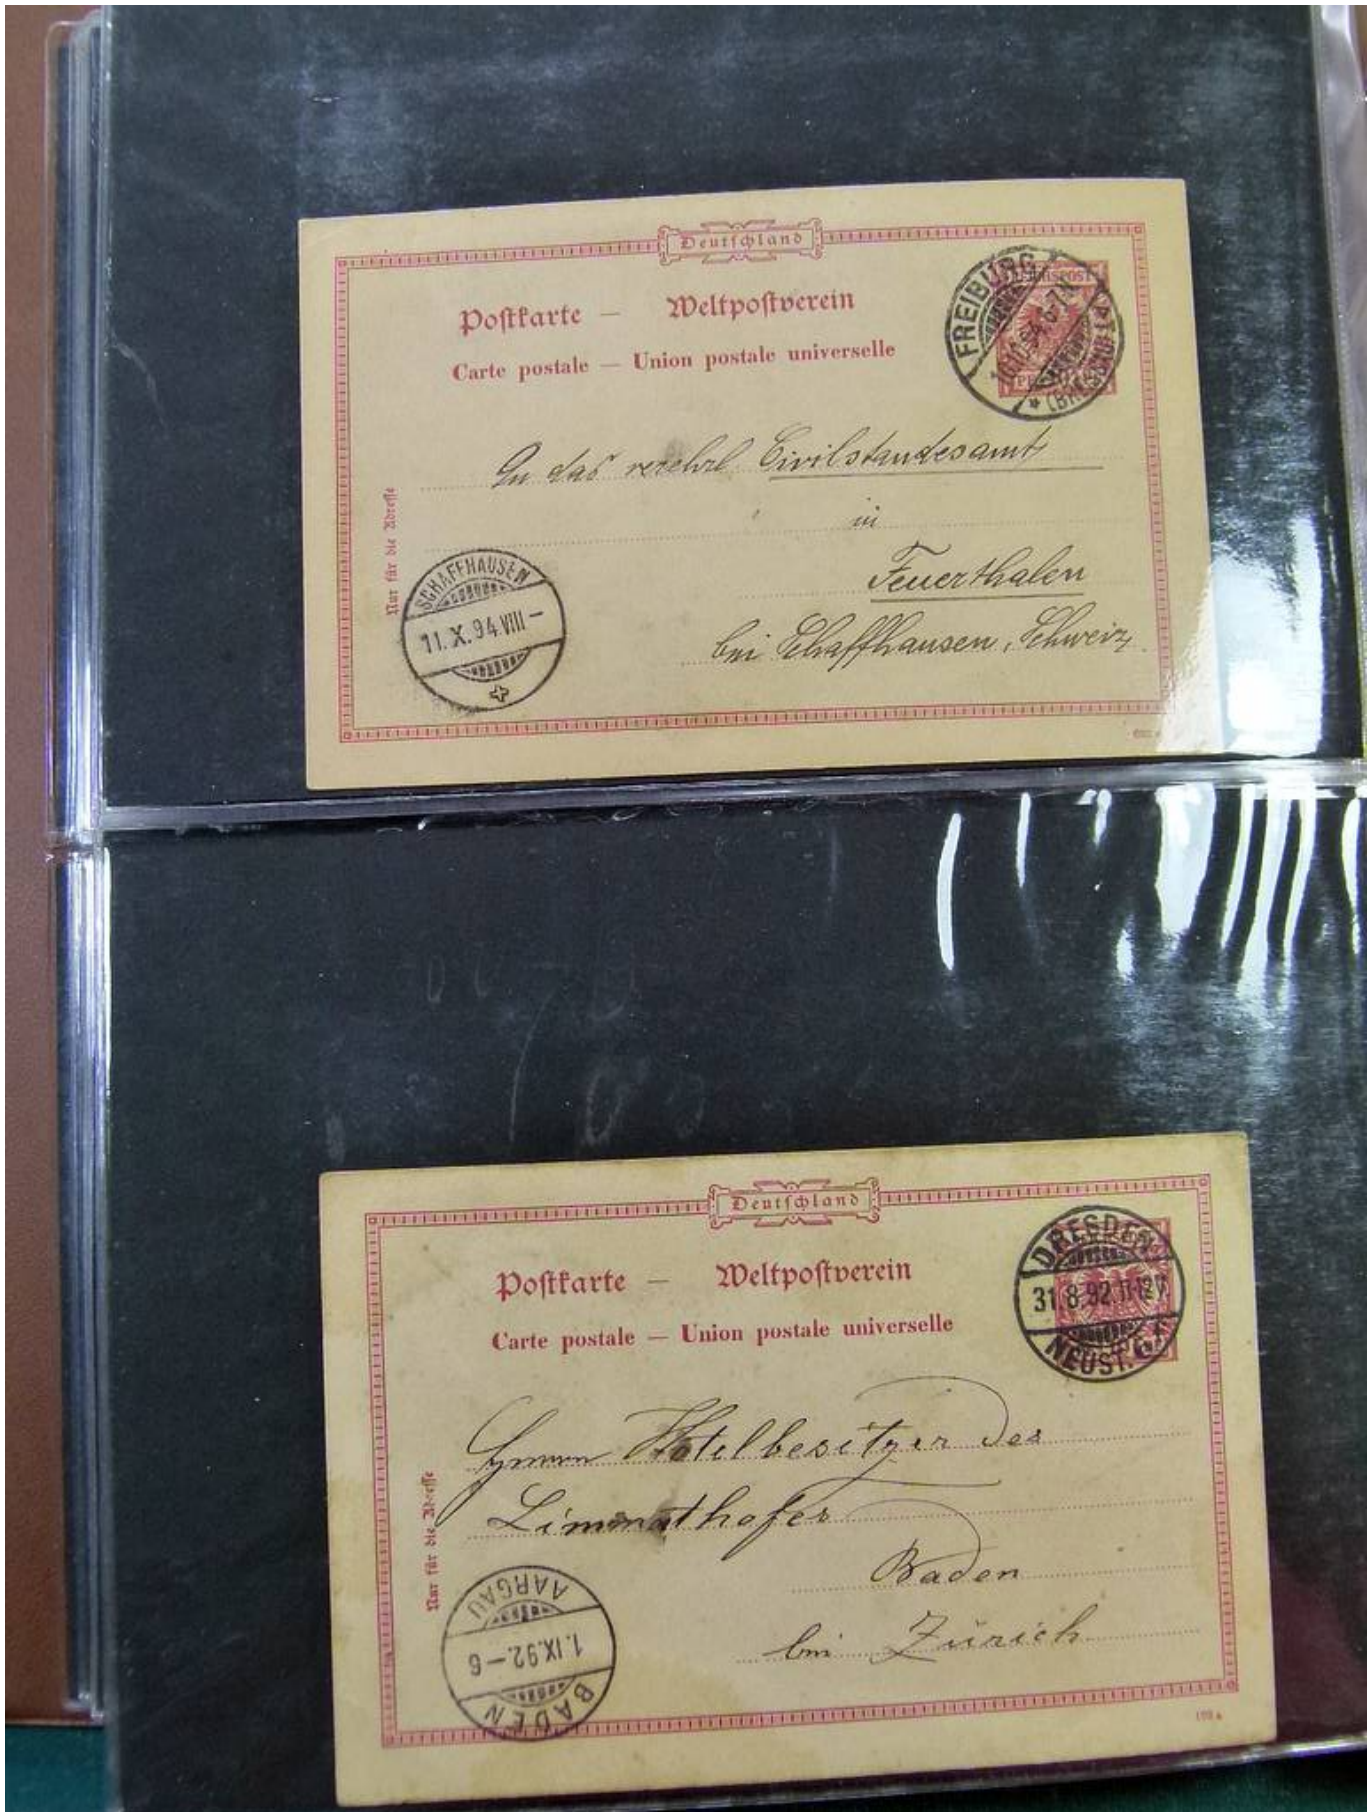 Deutschland
Postkarte — Weltpostverein
Carte postale — Union postale universelle
FREIBURG
10.10.94.6-7N.
* (BREISGAU)
An das verehrl. Civilstandesamt
in
Feuerthalen
bei Schaffhausen, Schweiz.
Nur für die Adresse
SCHAFFHAUSEN
11.X.94.VIII-
Deutschland
Postkarte — Weltpostverein
Carte postale — Union postale universelle
DRESDEN
31.8.92.11-12V.
NEUST.
Herrn Hotelbesitzer des
Limmathofes
Baden
bei Zürich
Nur für die Adresse
AARGAU
1.IX.92.-6
BADEN